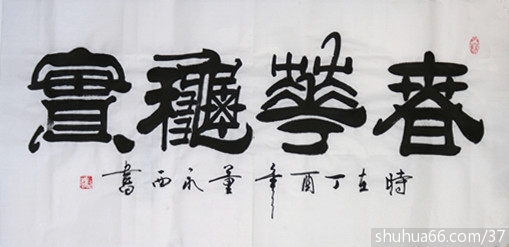 春華穐實
時在丁酉年董永西書
shuhua66.com/37